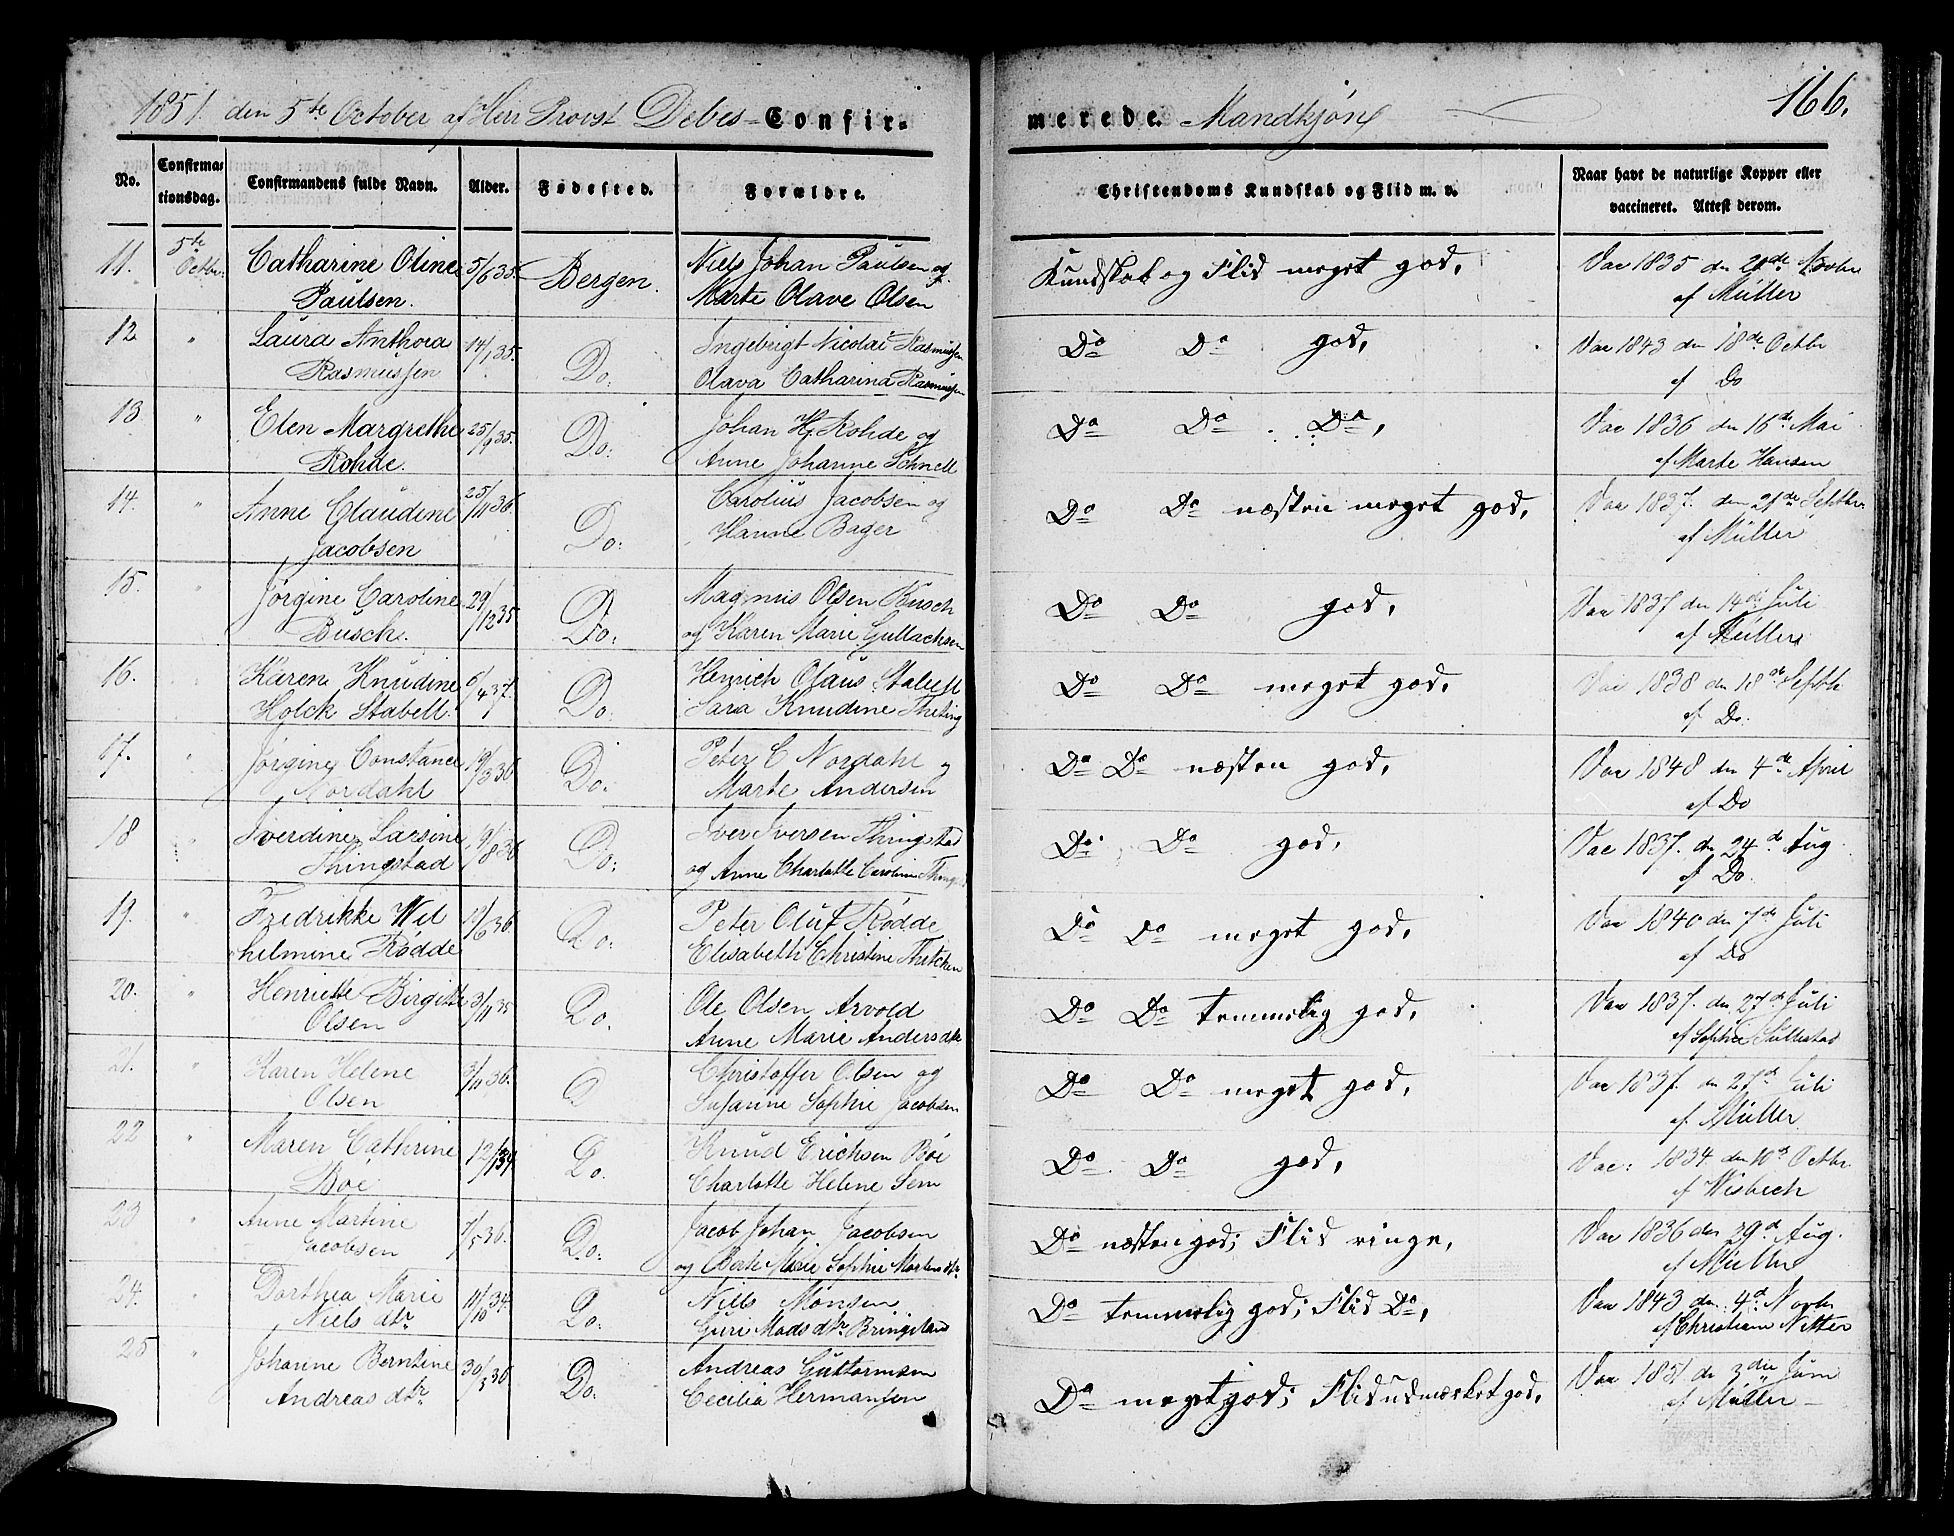 1851. den 5te October af Herr Provst Debes = Confir=
merede. Mandkjøn
166.
No. Confirmationsdag. Confirmandens fulde Navn. Alder. Fødested. Forældre. Christendoms Kundskab og Flid m. v. Naar havt de naturlige Kopper eller vaccineret. Attest derom.
11. 5te Octbr: Catharine Oline 5/6 35. Bergen. Niels Johan Paulsen og Kundskab og Flid meget god, Vac 1835 den Novbr
Paulsen. Marte Olave Olsen af Müller
12 " Laura Anthora 14/1 35. Do: Ingebrigt Nicolai Rasmussen Do Do god, Vac 1843 den 18de Octbr
Rasmussen Olava Catharina Rasmussen af Do
13 " Elen Margrethe 25/9 35. Do: Johan H. Rohde og Do Do Do, Vac 1836 den 16de Mai
Rohde. Anne Johanne Schnell af Marte Hansen
14. " Anne Claudine 25/11 36. Do: Carolius Jacobsen og Do Do næsten meget god, Vac 1837. den 21de Septbr
Jacobsen Hanne Bager af Müller
15. " Jørgine Caroline 29/12 35 Do: Magnus Olsen Busch Do Do god, Vac 1837 den 14de Juli
Busch. og Karen Marie Gullachsen af Müller
16. " Karen Knudine 6/4 37. Do: Henrich Olaus Stabell Do Do meget god, Vac 1838 den 18de Septb
Holck Stabell. Sara Knudine Theting af Do.
17. " Jørgine Constance 19/3 36 Do: Peter C Nordahl og Do Do næsten god, Vac 1848 den 4de April
Nordahl Marte Andersen af Do
18 " Iverdine Larsine 19/8 36 Do: Iver Iversen Thingstad Do Do god, Vac 1837. den 24de Aug.
Thingstad og Anne Charlotte Caroline af Do.
19. " Fredrikke Wil 19/6 36 Do: Peter Oluf Rødde Do Do meget god, Vac 1840 den 7de Juli
helmine Rødde Elisabeth Christine af Do
20. " Henriette Birgitte 3/11 35 Do. Ole Olsen Arvold Do Do temmelig god, Vac 1837. den 27d Juli
Olsen Anne Marie Andersdtr af Sophie
21. " Karen Helene 3/11 36. D Christoffer Olsen og Do Do meget god, Vac 1837. den 27d Juli
Olsen Susanne Sophie Jacobsen af Müller
22 " Maren Cathrine 12/ 34 Do. Knud Erichsen Böe Do Do god, Vac: 1834 den 10d Octbr.
Böe Charlotte Helene Sem af Wisbech
23 " Anne Martine 7/5 36. Do. Jacob Johan Jacobsen Do næsten god; Flid ringe, Vac 1836 den 29d Aug.
Jacobsen og Berte Marie Sophie Mortensdtr af Müller
24. " Dorthea Marie 11/10 34. Do: Nills Monsen Do temmelig god; Flid Do, Vac 1843 den 4d. Novbr
Nielsdtr Guri Madsdtr af Christiam Nitter
25 " Johanne Berntine 30/3 36 Do: Andreas Guttormsen Do meget god; Flid udmærket god, Vac 1851 den 3die Juni
Andreasdtr Cecilia Hermansen af Müller